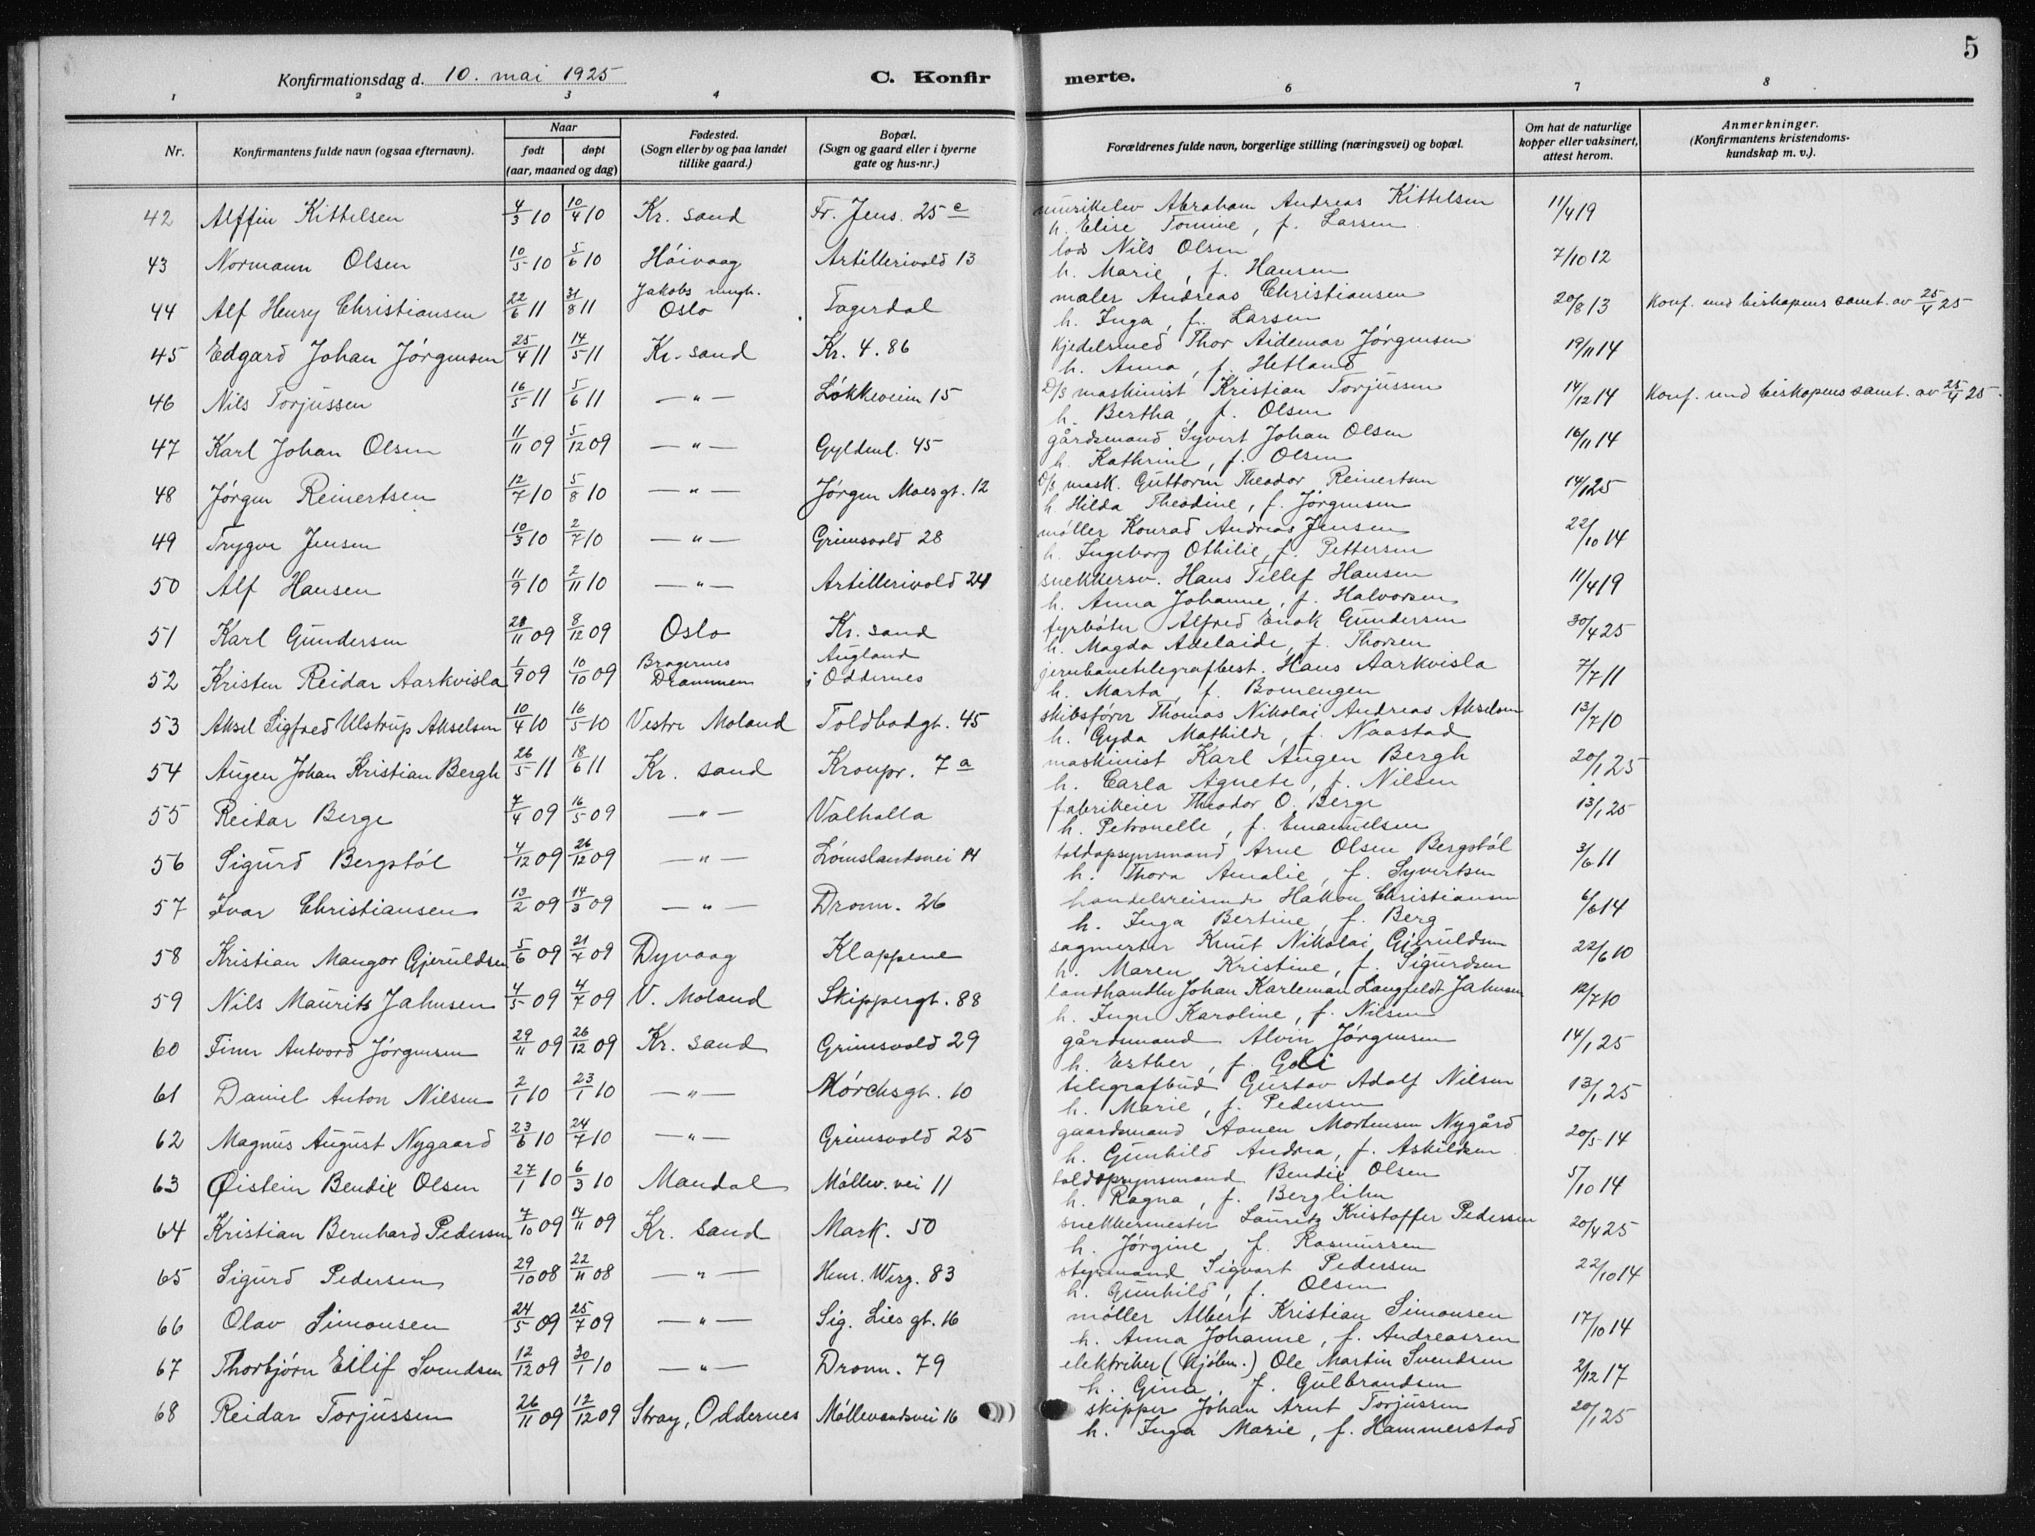 5
Konfirmationsdag d. 10. mai 1925
C. Konfirmerte.
1 2 3 4 6 7 8
Nr.
Konfirmantens fulde navn (ogsaa efternavn).
Naar
født døpt
(aar, maaned og dag)
Fødested.
(Sogn eller by og paa landet
tillike gaard.)
Bopæl.
(Sogn og gaard eller i byerne
gate og hus-nr.)
Forældrenes fulde navn, borgerlige stilling (næringsvei) og bopæl.
Om hat de naturlige
kopper eller vaksinert,
attest herom.
Anmerkninger.
(Konfirmantens kristendoms-
kundskap m. v.).
42 Alffin Kittelsen 4/3 10 10/4 10 Kr. sand Fr. Jens. 25 c Abraham Andreas Kittelsen 11/4 19
h. Elise Tomine, f. Larsen
43 Normann Olsen 10/5 10 5/6 10 Höivaag Artillerivold 13 lods Nils Olsen 7/10 12
h. Marie, f. Hansen
44 Alf Henry Christiansen 22/6 11 31/8 11 Jakobs mngh. Oslo Fagerdal maler Andreas Christiansen 20/8 13 Konf. med biskopens samt. av 25/4 25
h. Inga, f. Larsen
45 Edgard Johan Jörgensen 25/4 11 14/5 11 Kr. sand Kr. 4. 86 kjedelsmed Thor Aidemar Jörgensen 19/11 14
h. Anna, f. Hetland
46 Nils Torjussen 16/5 11 5/6 11 — " — Lökkeveien 15 D/s maskinist Kristian Torjussen 14/12 14 Konf. med biskopens samt. av 25/4 25
h. Bertha, f. Olsen
47 Karl Johan Olsen 11/11 09 5/12 09 — " — Gyldenl. 45 gårdsmand Syvert Johan Olsen 16/11 14
h. Kathrine, f. Olsen
48 Jörgen Reinertsen 12/7 10 5/8 10 — " — Jörgen Moes gt. 12 D/s mask. Guttorm Theodor Reinertsen 14/1 25
h. Hilda Theodine, f. Jörgensen
49 Trygve Jensen 10/3 10 2/7 10 — " — Grimsvold 28 möller Konrad Andreas Jensen 22/10 14
h. Ingeborg Othilie, f. Pettersen
50 Alf Hansen 11/9 10 2/11 10 — " — Artillerivold 24 snekkersv. Hans Tellef Hansen 11/4 19
h. Anna Johanne, f. Halvorsen
51 Karl Gundersen 28/11 09 8/12 09 Oslo Kr. sand fyrböter Alfred Enok Gundersen 30/4 25
h. Magda Adelaide, f. Thorsen
52 Kristen Reidar Aarkvisla 1/9 09 10/10 09 Bragernes Drammen Augland i Oddernes jernbanetelegrafbest. Hans Aarkvisla 7/7 11
h. Marta, f. Bomengen
53 Aksel Sigfred Ulstrup Akselsen 10/4 10 16/5 10 Vestre Moland Toldbodgt. 45 skibsförer Thomas Nikolai Andreas Akselsen 13/7 10
h. Gyda Mathilde, f. Naastad
54 Augen Johan Kristian Bergh 26/5 11 18/6 11 Kr. sand Kronpr. 7 a maskinist Karl Augen Bergh 20/1 25
h. Carla Agnete, f. Nilsen
55 Reidar Berge 7/4 09 16/5 09 — " — Valhalla fabrikeier Theodor O. Berge 13/1 25
h. Petronelle, f. Emanuelsen
56 Sigurd Bergstöl 4/12 09 26/12 09 — " — Lömslandsvei 14 toldopsynsmand Arne Olsen Bergstöl 3/6 11
h. Thora Amalie, f. Syvertsen
57 Ivar Christiansen 13/2 09 14/3 09 — " — Dronn. 26 handelsreisende Hakon Christiansen 6/6 14
h. Inga Bertine, f. Berg
58 Kristian Mangor Gjeruldsen 5/6 09 21/7 09 Dyvaag Klappene sagmester Knut Nikolai Gjeruldsen 22/6 10
h. Maren Kristine, f. Sigurdsen
59 Nils Maurits Jahnsen 4/5 09 4/7 09 V. Moland Skippergt. 88 landhandler Johan Karleman Langfeldt Jahnsen 12/7 10
h. Inger Karoline, f. Nilsen
60 Finn Antvord Jörgensen 29/11 09 26/12 09 Kr. sand Grimsvold 29 gårdsmand Alvin Jörgensen 14/1 25
h. Esther, f. Goli
61 Daniel Anton Nilsen 2/1 10 23/1 10 — " — Mörchsgt. 10 telegrafbud Gustav Adolf Nilsen 13/1 25
h. Marie, f. Pedersen
62 Magnus August Nygaard 23/6 10 24/7 10 — " — Grimsvold 25 gaardsmand Aanen Mortensen Nygård 20/5 14
h. Gunhild Andrea, f. Askildsen
63 Øistein Bendix Olsen 27/1 10 6/3 10 Mandal Möllev. vei 11 toldopsynsmand Bendix Olsen 5/10 14
h. Ragna, f. Berglihn
64 Kristian Bernhard Pedersen 7/10 09 14/11 09 Kr. sand Mark. 50 snekkermester Lauritz Kristoffer Pedersen 20/4 25
h. Jörgine, f. Rasmussen
65 Sigurd Pedersen 29/10 08 22/11 08 — " — Henr. Werg. 83 styrmand Sigvart Pedersen 22/10 14
h. Gunhild, f. Olsen
66 Olav Simonsen 24/5 09 25/7 09 — " — Sig. Lies gt. 16 möller Albert Kristian Simonsen 17/10 14
h. Anna Johanne, f. Andreassen
67 Thorbjörn Eilif Svendsen 12/12 09 30/1 10 — " — Dronn. 79 elektriker (kjöbm.) Ole Martin Svendsen 2/12 17
h. Gina, f. Gulbrandsen
68 Reidar Torjussen 26/11 09 12/12 09 Stray, Oddernes Möllevandsvei 16 skipper Johan Arnt Torjussen 20/1 25
h. Inga Marie, f. Hammerstad